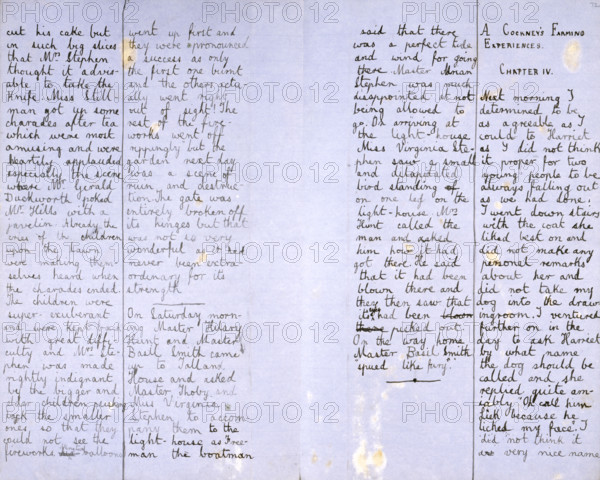 cut his cake but
in such big slices
that Mrs Stephen
thought it advis-
able to take the
knife. Miss Still-
man got up some
charades after tea
which were most
amusing and were
heartily applauded
especially the scene
where Mr Gerald
Duckworth poked
Mr Hills with a
javelin. Already the
cries of the children
upon the lawn
were making them
selves heard when
the charades ended.
The children were
super-exuberant
and were kept back
with great diffi-
culty and Mrs Ste-
phen was made
rightly indignant
by the bigger and
older children pushing
back the smaller
ones, so that they
could not see the
fireworks balloons
went up first and
they were a pronounced
a success as only
the first one burnt
and the others actu
ally went right
out of sight! The
rest of the fire-
works went off
rippingly but the
garden next day
was a scene of
ruin and destruc-
tion. The gate was
entirely broken off
its hinges but that
was not so very
wonderful as it had
never been extra-
ordinary for its
strength
On Saturday morn-
ing Master Hilary
Hunt and Master
Basil Smith came
up to Talland
House and asked
Master Thoby and
Miss Virginia
Stephen to accom
pany them to the
light-house as Free-
man the boatman
said that there
was a perfect tide
and wind for going
there. Master Adrian
Stephen was much
disappointed at not
being allowed to
go. On arriving at
the light-house
Miss Virginia Ste-
phen saw a small
and dilapidated
bird standing
on one leg on the
light-house. Mrs
Hunt called the
man and asked
him how it had
got there. He said
that it had been
blown there and
they then saw that
its had been blown
there picked out.
On the way home
Master Basil Smith
"spued like fury".
72
A COCKNEY'S FARMING
EXPERIENCES.
CHAPTER IV.
Next morning I
determined to be
as agreeable as I
could to Harriet
as I did not think
it proper for two
young people to be
always falling out
as we had done.
I went down stairs
with the coat she
liked best on and
did not make any
personel remarks
about her and
did not take my
dog into the draw
ingroom. I ventured
further on in the
day to ask Harriet
by what name
the dog should be
called and she
replied quite ami-
ably "Oh call him
Lick because he
licked my face". I
did not think it
a very nice name
PHOTO 12